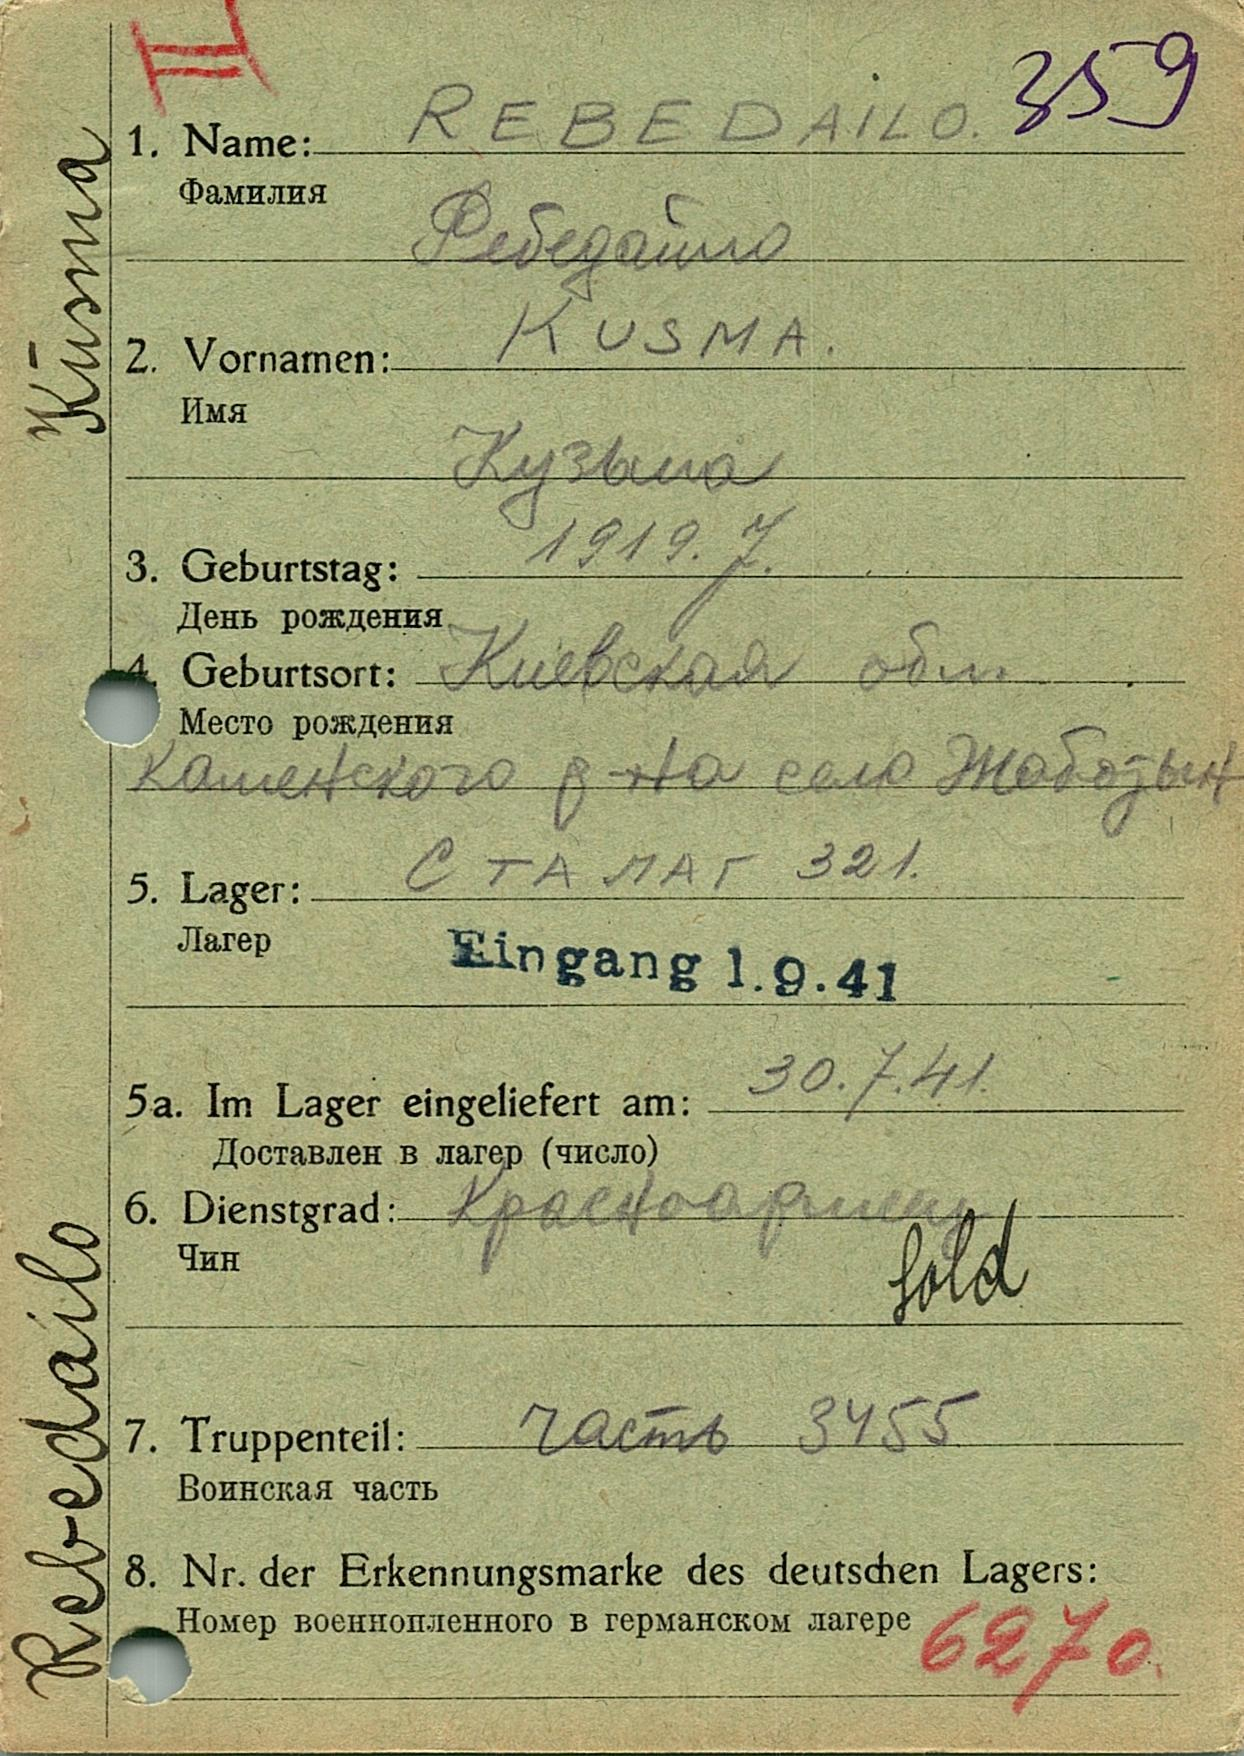 III
359
1. Name: REBEDAILO.
Фамилия
Ребедайло
2. Vornamen: KUSMA.
Имя
Кузьма
3. Geburtstag: 1919. 7.
День рождения
4. Geburtsort: Киевская обл.
Место рождения
Каменского р-на село Жаботын
5. Lager: СТАЛАГ 321.
Лагер
Eingang 1.9.41
5a. Im Lager eingeliefert am: 30.7.41.
Доставлен в лагер (число)
6. Dienstgrad: Красноармеец
Чин
Sold
7. Truppenteil: часть 3455
Воинская часть
8. Nr. der Erkennungsmarke des deutschen Lagers:
Номер военнопленного в германском лагере
6270.
Rebedailo Kusma